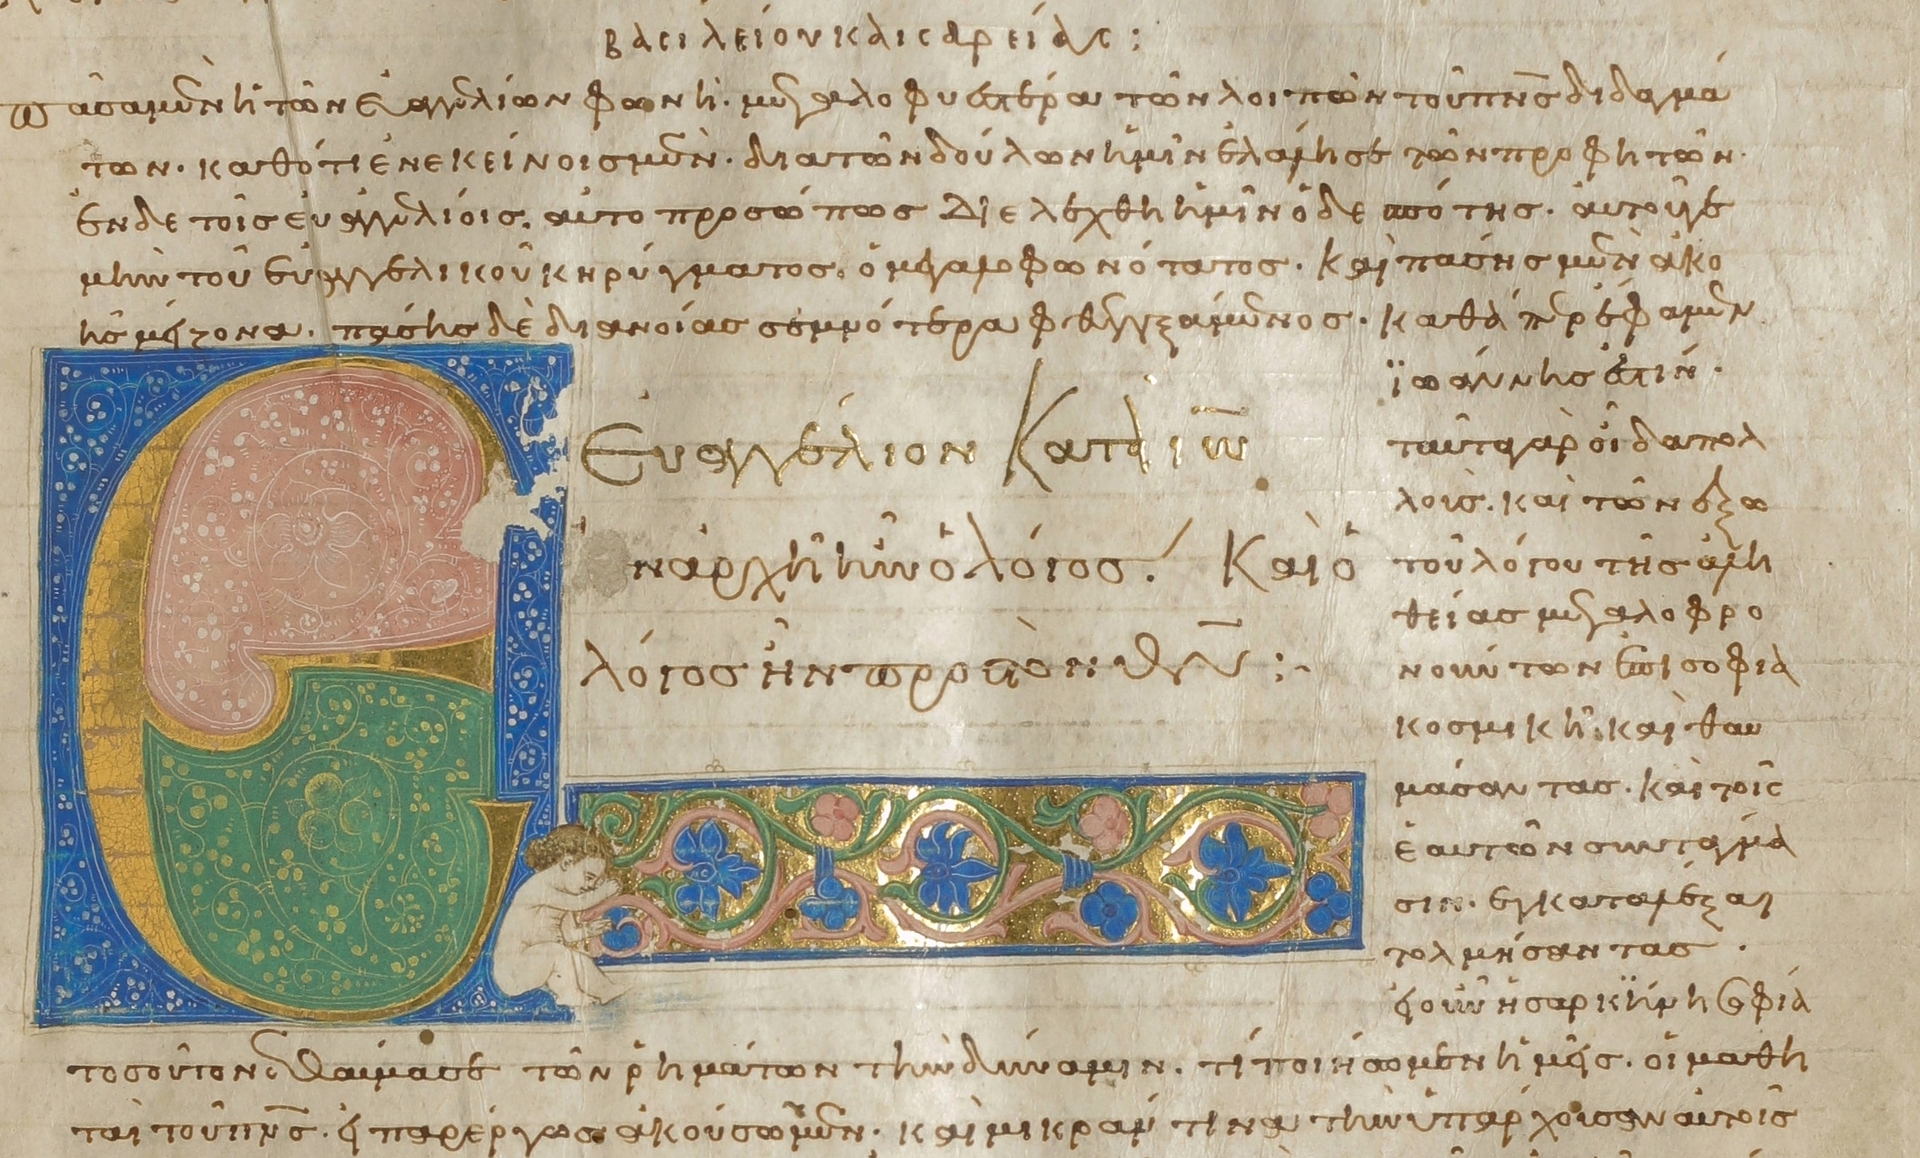 βασιλείου καισαρείας:
πᾶσα μὲν ἡ τῶν εὐαγγελίων φωνὴ. μεγαλοφυεστέρα τῶν λοιπῶν τοῦ πνς διδαγμά
των. καθότι ἐν ἐκείνοις μὲν. διὰ τῶν δούλων ἡμῖν ἐλάλησε τῶν προφητῶν.
ἐν δὲ τοῖς εὐαγγελίοις. αὐτοπροσώπως διελέχθη ἡμῖν ὁ δεσπότης. αὐτοῦ γε
μὴν τοῦ εὐαγγελικοῦ κηρύγματος. ὁ μεγαλοφωνότατος. καὶ πάσης μὲν ἀκο
ῆς μείζονα. πάσης δὲ διανοίας σεμνότερα φθεγξάμενος. καθάπερ ἔφαμεν
ἰωάννης ἐστίν.
Εὐαγγέλιον Κατὰ ἰω
ταῦτα γὰρ οἶδα πολ
λοὺς. καὶ τῶν ἔξω
ν ἀρχῆ ἦν ὁ λόγος. Καὶ ὁ
τοῦ λόγου τῆς ἀλη
θείας μεγαλοφρο
λόγος ἦν πρὸς τὸν θν:
νούντων ἐπὶ σοφία
κοσμικῆ. καὶ θαυ
μάσαντας. καὶ τοῖς
ἑαυτῶν συντάγμα
σιν. ἐγκαταμίξαι
τολμήσαντας.
εἰ οὖν ἡ σαρκικὴ σοφία
τοσοῦτον ἐθαύμασε τῶν ῥημάτων τὴν δύναμιν. τί ποιήσωμεν ἡμεῖς. οἱ μαθη
ταὶ τοῦ πνς. εἰ παρέργως ἀκούσωμεν. καὶ μικράν τινα τὴν ὑπάρχουσαν αὐτοῖς